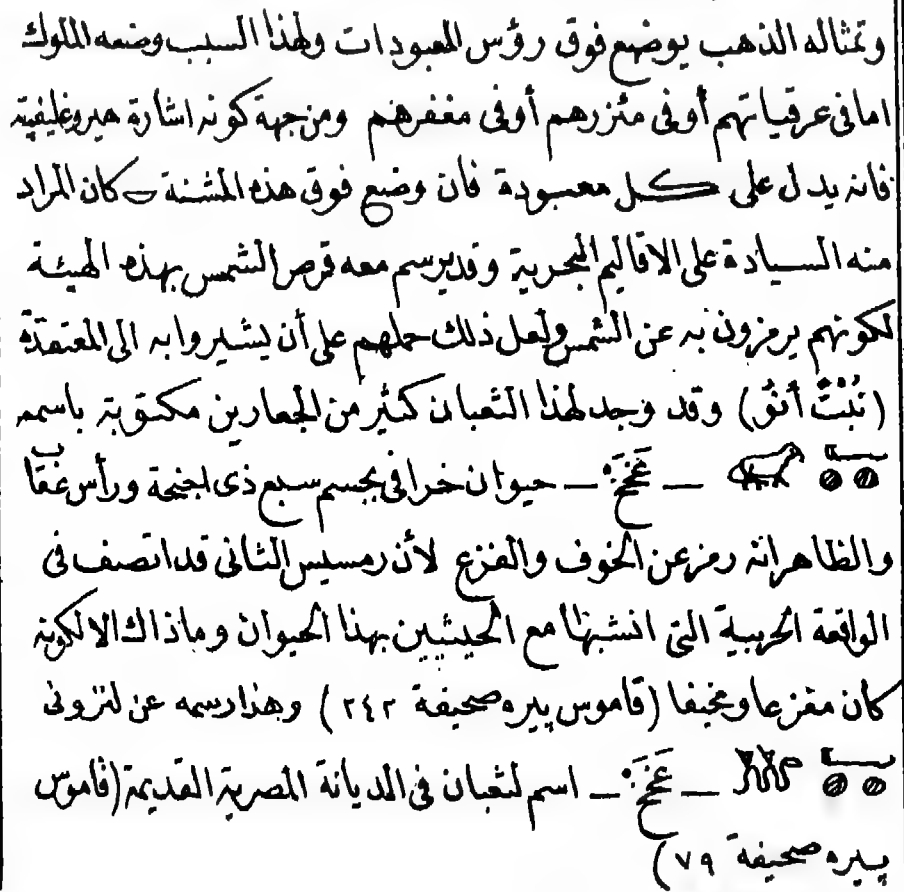 وتمثاله الذهب يوضع فوق رؤس المعبودات ولهذا السبب وضعه الملوك
اما فى عرقياتهم أو فى مئزرهم أو فى مغفرهم ومن جهة كونه اشارة هيروغليفية
فانه يدل على كل معبودة فان وضع فوق هذه المشنة كان المراد
منه السيادة على الاقاليم البحرية وقد يرسم معه قرص الشمس بهذه الهيئة
لكونهم يرمزون به عن الشمس ولعل ذلك حملهم على أن يشيروا به الى المعتقدة
(نُبْتْ أَنْقُ) وقد وجد لهذا الثعبان كثير من الجعارين مكتوبة باسمه
— عَخَخْ — حيوان خرافى بجسم سبع ذى اجنحة ورأس عقاب
والظاهر انه رمز عن الخوف والفزع لأن رمسيس الثانى قد اتصف فى
الواقعة الحربية التى انشبها مع الحيثيين بهذا الحيوان وما ذاك الا لكونه
كان مفزعا ومخيفا (قاموس بيره صحيفة ٢٤٢) وهذا رسمه عن لنزونى
— عَخَخْ — اسم لثعبان فى الديانة المصرية القديمة (قاموس
بيره صحيفة ٧٩)